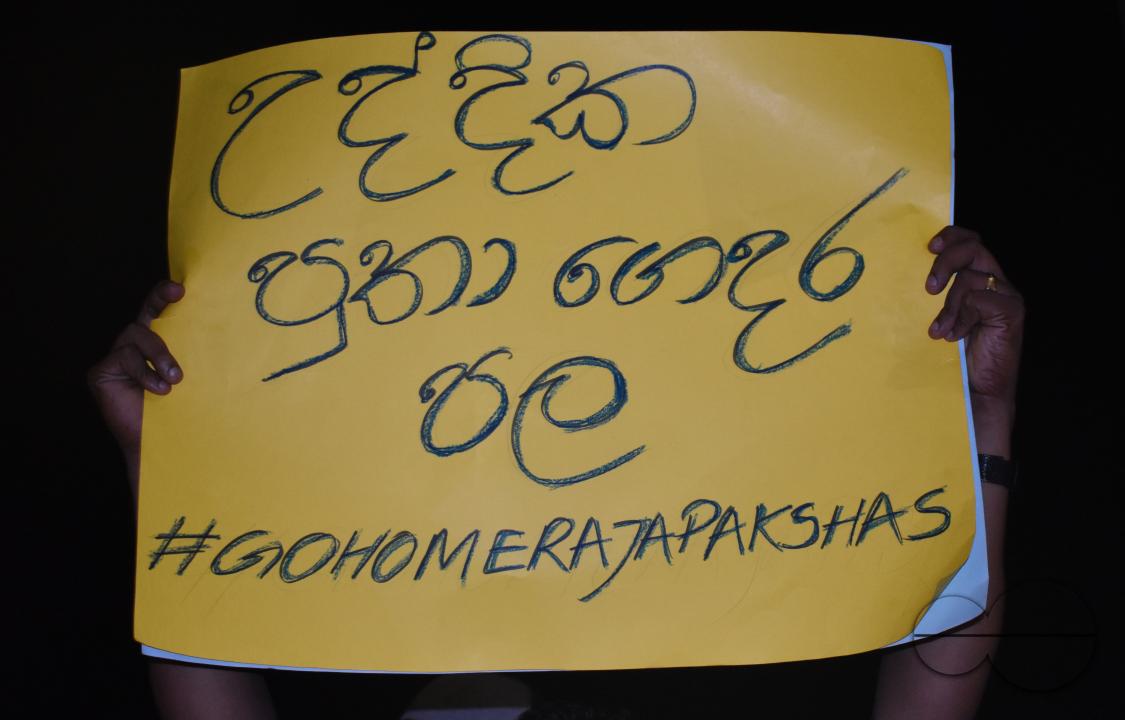 උද්දික
පුතා ගෙදර
පල
#GOHOMERAJAPAKSHAS